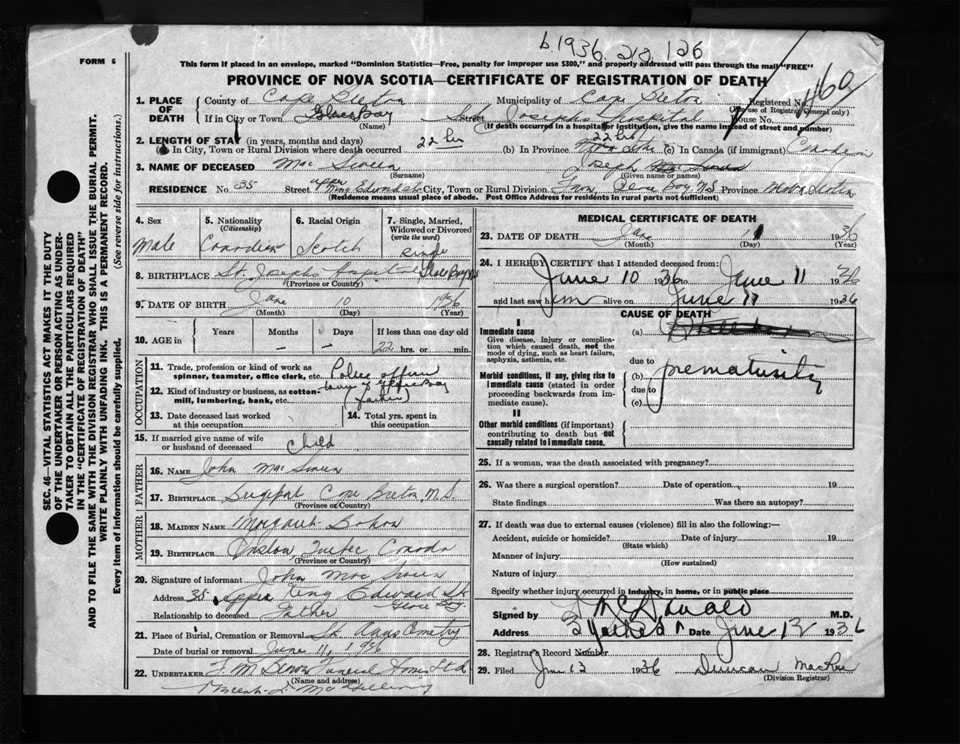 b 1936 212 126
FORM 6
This form if placed in an envelope, marked "Dominion Statistics—Free, penalty for improper use $300," and properly addressed will pass through the mail "FREE"
PROVINCE OF NOVA SCOTIA—CERTIFICATE OF REGISTRATION OF DEATH
1. PLACE OF DEATH County of Cape Breton Municipality of Cape Breton Registered No. 460
(For use of Registrar General only)
If in City or Town Glace Bay Street St. Josephs Hospital House No.
(Name) (If death occurred in a hospital or institution, give the name instead of street and number)
2. LENGTH OF STAY (in years, months and days)
(a) In City, Town or Rural Division where death occurred 22 hrs (b) In Province 22 hrs (c) In Canada (if immigrant) Canadian
3. NAME OF DECEASED Mac Sween Joseph
(Surname) (Given name or names)
RESIDENCE No. 35 Street upper King Edward City, Town or Rural Division Glace Bay N.S Province Nova Scotia
(Residence means usual place of abode. Post Office Address for residents in rural parts not sufficient)
4. Sex Male
5. Nationality (Citizenship) Canadian
6. Racial Origin Scotch
7. Single, Married, Widowed or Divorced (write the word) Single
8. BIRTHPLACE St. Josephs Hospital Glace Bay
(Province or Country)
9. DATE OF BIRTH June 10 1936
(Month) (Day) (Year)
10. AGE in Years Months Days If less than one day old
— — 22 hrs. or min.
OCCUPATION
11. Trade, profession or kind of work as spinner, teamster, office clerk, etc. Police officer
12. Kind of industry or business, as cotton-mill, lumbering, bank, etc. Town of Glace Bay
(Father)
13. Date deceased last worked at this occupation
14. Total yrs. spent in this occupation
15. If married give name of wife or husband of deceased Child
FATHER
16. NAME John Mac Sween
17. BIRTHPLACE Cape Breton, N.S.
(Province or Country)
MOTHER
18. MAIDEN NAME Margaret
19. BIRTHPLACE Canada
(Province or Country)
20. Signature of informant John Mac Sween
Address 35 upper King Edward St.
Glace Bay
Relationship to deceased Father
21. Place of Burial, Cremation or Removal St. Anns Cemetry
Date of burial or removal June 11, 1936
22. UNDERTAKER Funeral Home Ltd.
(Name and address)
MEDICAL CERTIFICATE OF DEATH
23. DATE OF DEATH June 11 1936
(Month) (Day) (Year)
24. I HEREBY CERTIFY that I attended deceased from:
June 10 1936 to June 11 1936
and last saw him alive on June 11 1936
CAUSE OF DEATH
I
Immediate cause
Give disease, injury or complication which caused death, not the mode of dying, such as heart failure, asphyxia, asthenia, etc.
(a)
due to
Morbid conditions, if any, giving rise to Immediate cause (stated in order proceeding backwards from immediate cause).
(b) prematurity
due to
(c)
II
Other morbid conditions (if important) contributing to death but not causally related to Immediate cause.
25. If a woman, was the death associated with pregnancy?
26. Was there a surgical operation? Date of operation 19
State findings Was there an autopsy?
27. If death was due to external causes (violence) fill in also the following:—
Accident, suicide or homicide? Date of injury 19
(State which)
Manner of injury
(How sustained)
Nature of injury
Specify whether injury occurred in industry, in home, or in public place
Signed by McDonald M.D.
Address Date June 12 1936
28. Registrar's Record Number
29. Filed June 13 1936 Duncan MacRae
(Division Registrar)
SEC. 46—VITAL STATISTICS ACT MAKES IT THE DUTY
OF THE UNDERTAKER OR PERSON ACTING AS UNDERTAKER
TO OBTAIN ALL THE PARTICULARS REQUIRED
IN THE "CERTIFICATE OF REGISTRATION OF DEATH"
AND TO FILE THE SAME WITH THE DIVISION REGISTRAR WHO SHALL ISSUE THE BURIAL PERMIT.
WRITE PLAINLY WITH UNFADING INK. THIS IS A PERMANENT RECORD.
Every item of information should be carefully supplied. (See reverse side for instructions.)